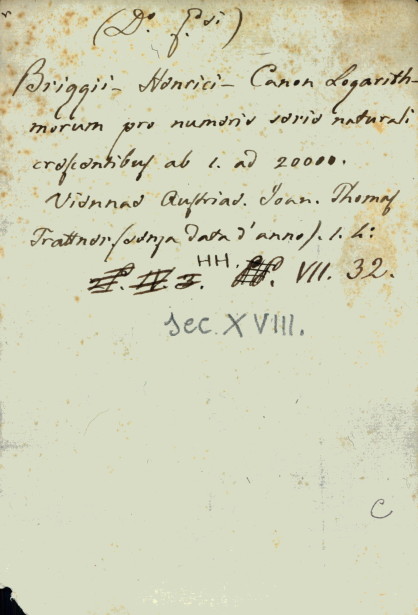 (D.º G.si)
Briggii - Henrici - Canon Logarith-
morum pro numeris serie naturali
crescentibus ab 1. ad 20000.
Viennae Austriae. Joan. Thomas
Trattner (senza data d'anno). 1. L:
HH. VII. 32.
Sec. XVIII.
C